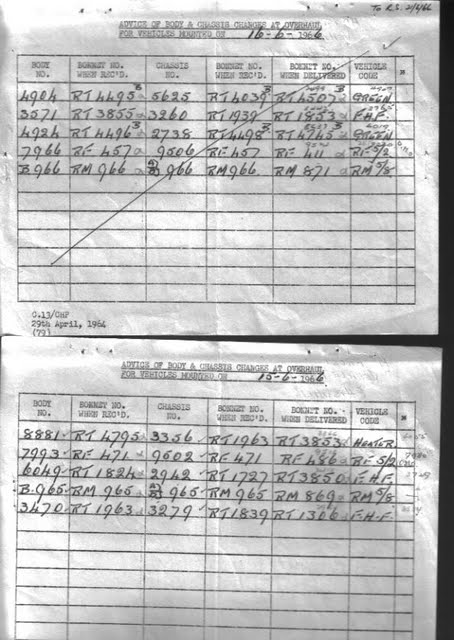 To R.S. 21/6/66
ADVICE OF BODY & CHASSIS CHANGES AT OVERHAUL
FOR VEHICLES MOUNTED ON 16-6-1966
BODY NO. BONNET NO. WHEN REC'D. CHASSIS NO. BONNET NO. WHEN REC'D. BONNET NO. WHEN DELIVERED VEHICLE CODE
4904 RT 4495 5625 RT 4039 RT 4507 GREEN
3571 RT 3855 3260 RT 1939 RT 1853 F.H.F.
4924 RT 4496 2738 RT 4498 RT 4745 GREEN
7966 RF 457 9506 RF 457 RF 411 RF 5/2
B.966 RM 966 966 RM 966 RM 871 RM 5/8
C.13/CHP
29th April, 1964
(79)
ADVICE OF BODY & CHASSIS CHANGES AT OVERHAUL
FOR VEHICLES MOUNTED ON 15-6-1966
BODY NO. BONNET NO. WHEN REC'D. CHASSIS NO. BONNET NO. WHEN REC'D. BONNET NO. WHEN DELIVERED VEHICLE CODE
8881 RT 4795 3356 RT 1963 RT 3853 HEATER
7993 RF 471 9602 RF 471 RF 486 RF 5/2
6049 RT 1824 2942 RT 1727 RT 3850 F.H.F.
B.965 RM 965 965 RM 965 RM 869 RM 5/8
3470 RT 1963 3279 RT 1839 RT 1306 F.H.F.